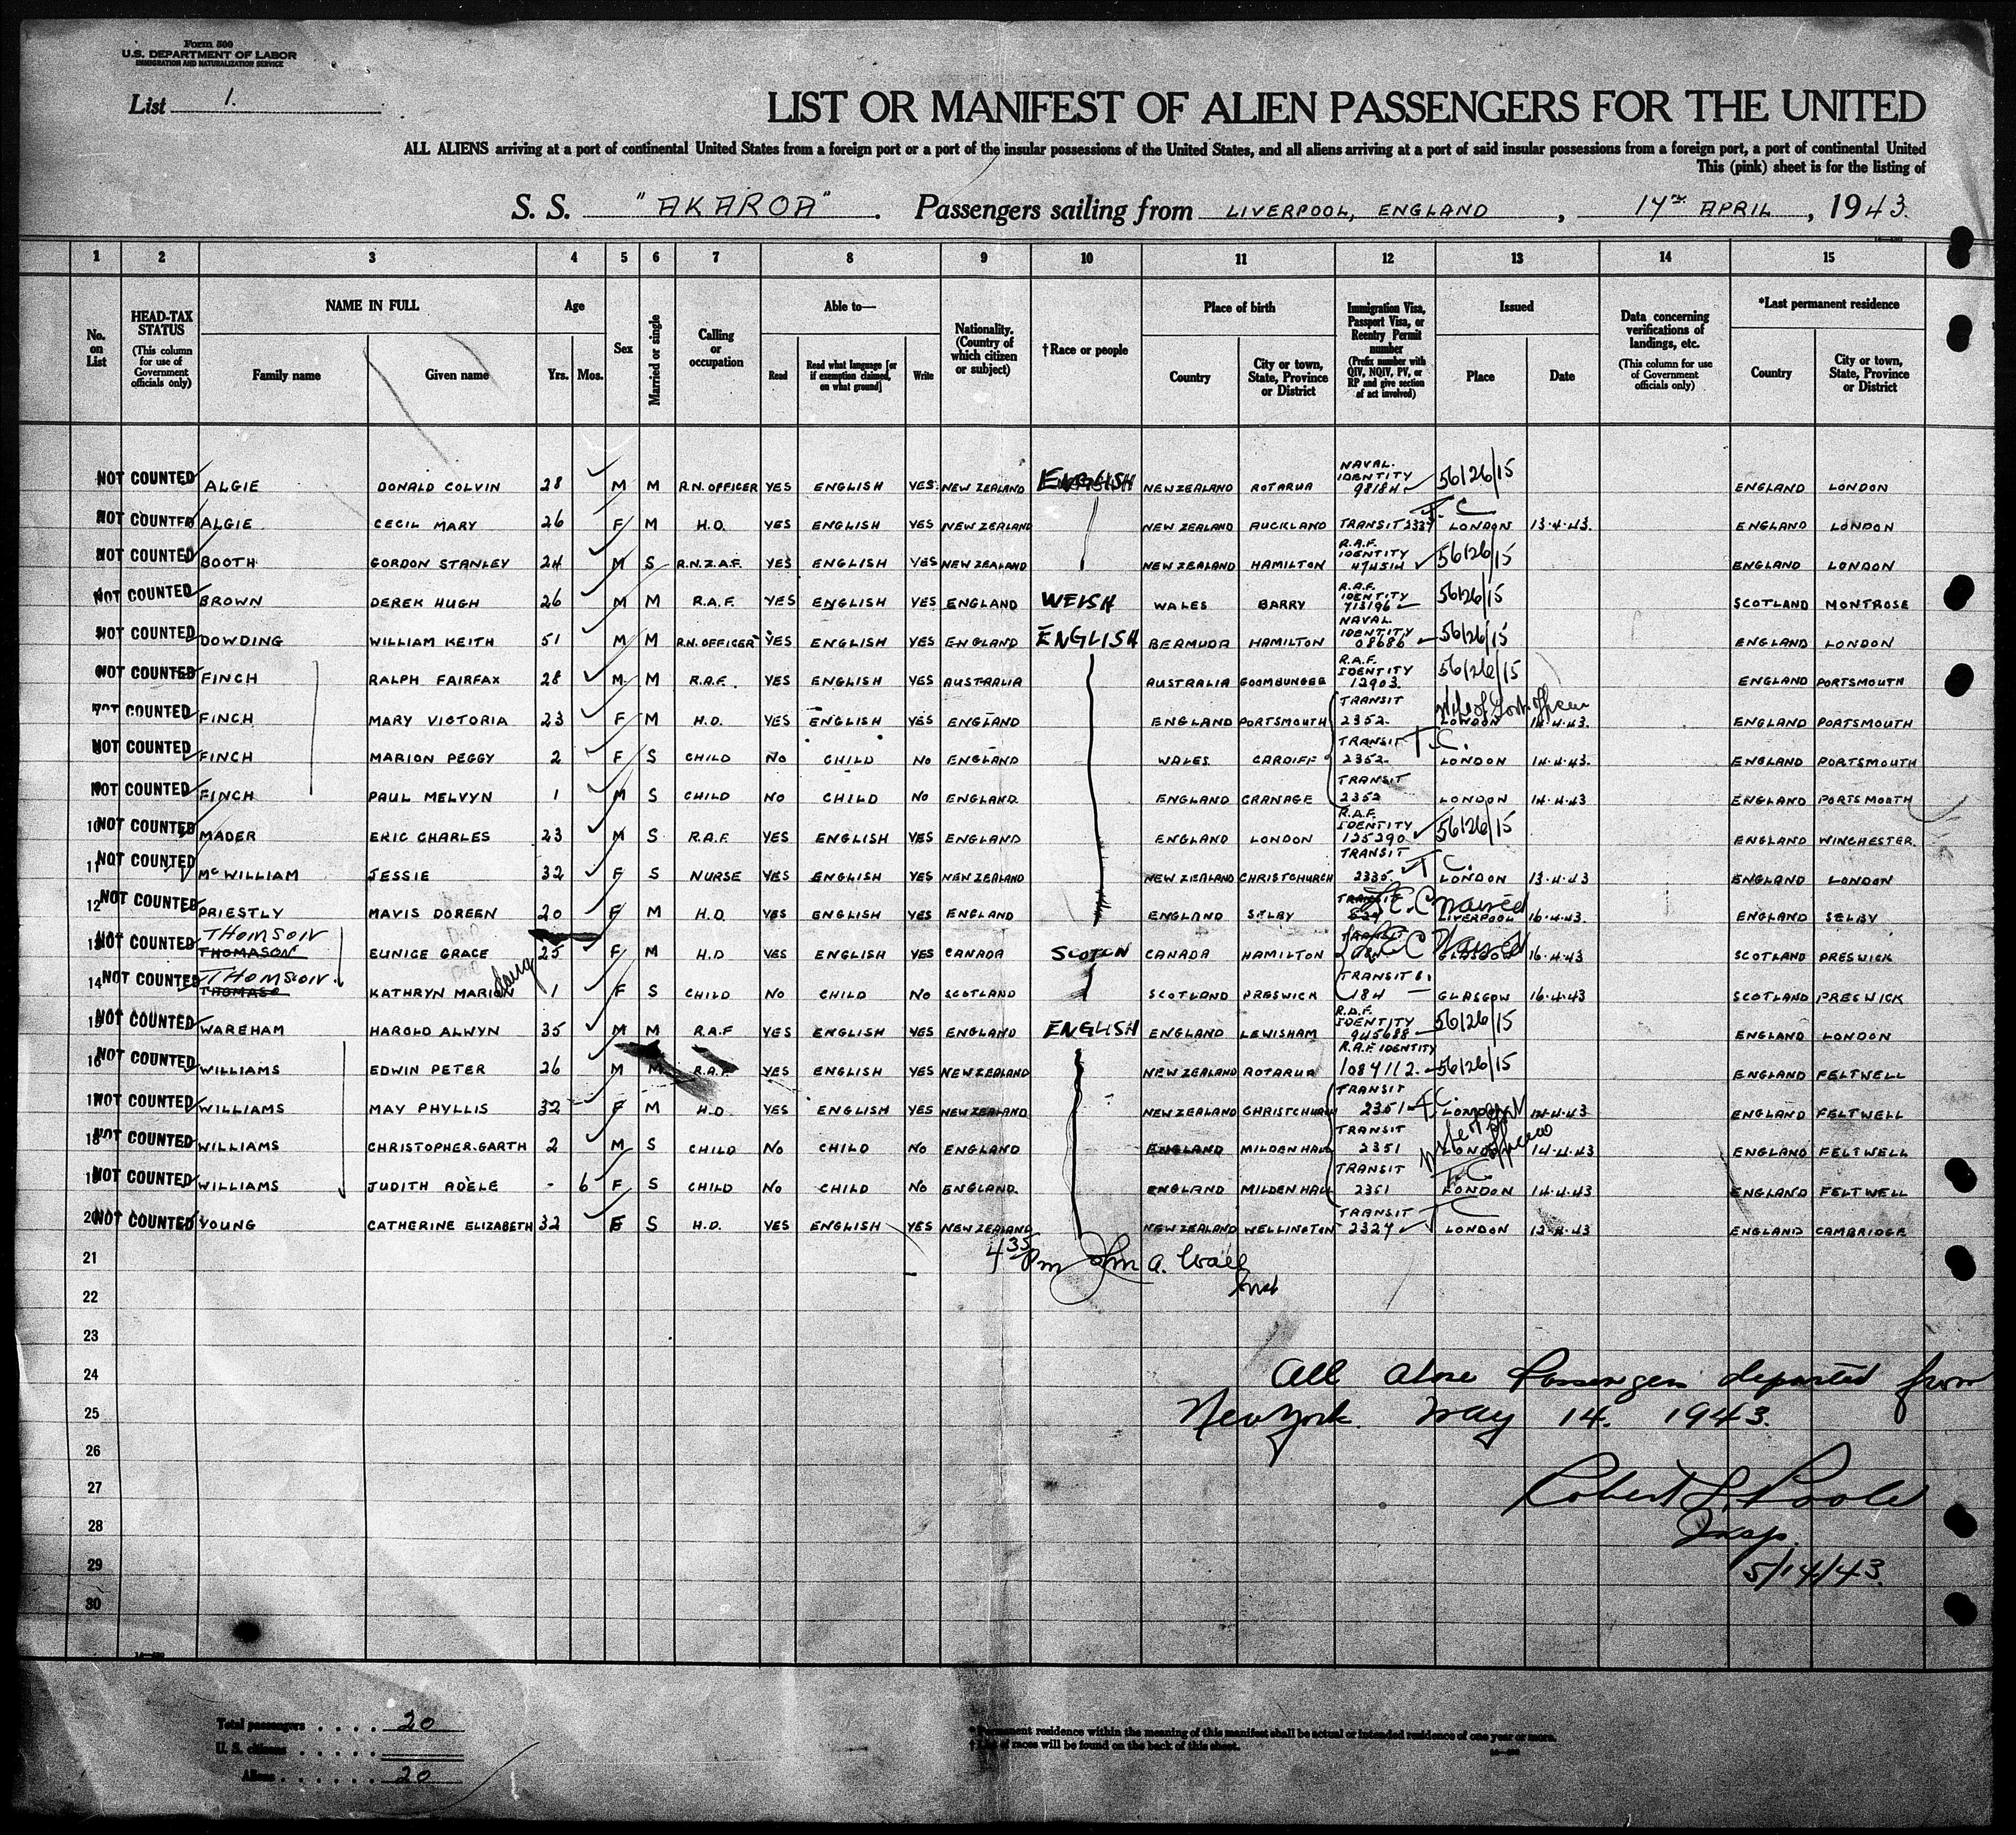 Form 500
U.S. DEPARTMENT OF LABOR
IMMIGRATION AND NATURALIZATION SERVICE
List 1.
LIST OR MANIFEST OF ALIEN PASSENGERS FOR THE UNITED
ALL ALIENS arriving at a port of continental United States from a foreign port or a port of the insular possessions of the United States, and all aliens arriving at a port of said insular possessions from a foreign port, a port of continental United
This (pink) sheet is for the listing of
S. S. "AKAROA" . Passengers sailing from LIVERPOOL, ENGLAND , 17TH APRIL , 1943.
1 2 3 4 5 6 7 8 9 10 11 12 13 14 15
No. on List
HEAD-TAX STATUS (This column for use of Government officials only)
NAME IN FULL
Family name Given name
Age
Yrs. Mos.
Sex
Married or single
Calling or occupation
Able to—
Read Read what language [or if exemption claimed, on what ground] Write
Nationality. (Country of which citizen or subject)
†Race or people
Place of birth
Country City or town, State, Province or District
Immigration Visa, Passport Visa, or Reentry Permit number (Prefix number with QIV, NQIV, PV, or RP and give section of act involved)
Issued
Place Date
Data concerning verifications of landings, etc. (This column for use of Government officials only)
*Last permanent residence
Country City or town, State, Province or District
NOT COUNTED ALGIE DONALD COLVIN 28 M M R.N. OFFICER YES ENGLISH YES NEW ZEALAND ENGLISH NEW ZEALAND ROTARUA NAVAL IDENTITY 98184 56126/15 ENGLAND LONDON
NOT COUNTED ALGIE CECIL MARY 26 F M H.D. YES ENGLISH YES NEW ZEALAND NEW ZEALAND AUCKLAND TRANSIT 2337 T.C. LONDON 13.4.43. ENGLAND LONDON
NOT COUNTED BOOTH GORDON STANLEY 24 M S R.N.Z.A.F. YES ENGLISH YES NEW ZEALAND NEW ZEALAND HAMILTON R.A.F. IDENTITY 474514 56126/15 ENGLAND LONDON
NOT COUNTED BROWN DEREK HUGH 26 M M R.A.F. YES ENGLISH YES ENGLAND WELSH WALES BARRY R.A.F. IDENTITY 713196 56126/15 SCOTLAND MONTROSE
NOT COUNTED DOWDING WILLIAM KEITH 51 M M R.N. OFFICER YES ENGLISH YES ENGLAND ENGLISH BERMUDA HAMILTON NAVAL IDENTITY 08686 56126/15 ENGLAND LONDON
NOT COUNTED FINCH RALPH FAIRFAX 28 M M R.A.F. YES ENGLISH YES AUSTRALIA AUSTRALIA GOOMBUNGEE R.A.F. IDENTITY 12903. 56126/15 ENGLAND PORTSMOUTH
NOT COUNTED FINCH MARY VICTORIA 23 F M H.D. YES ENGLISH YES ENGLAND ENGLAND PORTSMOUTH TRANSIT 2352. Wife of Govt. officer LONDON 14.4.43. ENGLAND PORTSMOUTH
NOT COUNTED FINCH MARION PEGGY 2 F S CHILD NO CHILD NO ENGLAND WALES CARDIFF TRANSIT 2352. T.C. LONDON 14.4.43. ENGLAND PORTSMOUTH
NOT COUNTED FINCH PAUL MELVYN 1 M S CHILD NO CHILD NO ENGLAND ENGLAND CRANAGE TRANSIT 2352 LONDON 14.4.43 ENGLAND PORTSMOUTH
10 NOT COUNTED MADER ERIC CHARLES 23 M S R.A.F YES ENGLISH YES ENGLAND ENGLAND LONDON R.A.F. IDENTITY 125290 56126/15 ENGLAND WINCHESTER.
11 NOT COUNTED McWILLIAM JESSIE 32 F S NURSE YES ENGLISH YES NEW ZEALAND NEW ZEALAND CHRISTCHURCH TRANSIT 2335. T.C. LONDON 13.4.43 ENGLAND LONDON
12 NOT COUNTED PRIESTLY MAVIS DOREEN 20 F M H.D. YES ENGLISH YES ENGLAND ENGLAND SELBY TRANSIT LIVERPOOL 16.4.43. ENGLAND SELBY
13 NOT COUNTED THOMSON THOMASON EUNICE GRACE 25 F M H.D YES ENGLISH YES CANADA SCOTCH CANADA HAMILTON TRANSIT GLASGOW 16.4.43 SCOTLAND PRESWICK
14 NOT COUNTED THOMSON THOMASO KATHRYN MARION daug 1 F S CHILD NO CHILD NO SCOTLAND SCOTLAND PRESWICK TRANSIT 184 GLASGOW 16.4.43 SCOTLAND PRESWICK
15 NOT COUNTED WAREHAM HAROLD ALWYN 35 M M R.A.F YES ENGLISH YES ENGLAND ENGLISH ENGLAND LEWISHAM R.A.F. IDENTITY 945688 56126/15 ENGLAND LONDON
16 NOT COUNTED WILLIAMS EDWIN PETER 26 M M R.A.F YES ENGLISH YES NEW ZEALAND NEW ZEALAND ROTARUA R.A.F. IDENTITY 1084112. 56126/15 ENGLAND FELTWELL
17 NOT COUNTED WILLIAMS MAY PHYLLIS 32 F M H.D YES ENGLISH YES NEW ZEALAND NEW ZEALAND CHRISTCHURCH TRANSIT 2351 T.C. LONDON 14.4.43 ENGLAND FELTWELL
18 NOT COUNTED WILLIAMS CHRISTOPHER.GARTH 2 M S CHILD NO CHILD NO ENGLAND ENGLAND MILDENHALL TRANSIT 2351 LONDON 14.4.43 ENGLAND FELTWELL
19 NOT COUNTED WILLIAMS JUDITH ADELE - 6 F S CHILD NO CHILD NO ENGLAND. ENGLAND MILDENHALL TRANSIT 2351 T.C LONDON 14.4.43 ENGLAND FELTWELL
20 NOT COUNTED YOUNG CATHERINE ELIZABETH 32 F S H.D. YES ENGLISH YES NEW ZEALAND NEW ZEALAND WELLINGTON TRANSIT 2327 T.C LONDON 13.4.43 ENGLAND CAMBRIDGE
21 4 35 Pm John A. Wall
22
23
24 All above Passengers departed from
25 New York May 14. 1943.
26
27 Robert L. Poole
28 Insp.
29 5/14/43.
30
16—430
Total passengers . . . . 20
U. S. citizens . . . . .
Aliens . . . . . . 20
* Permanent residence within the meaning of this manifest shall be actual or intended residence of one year or more.
† List of races will be found on the back of this sheet.